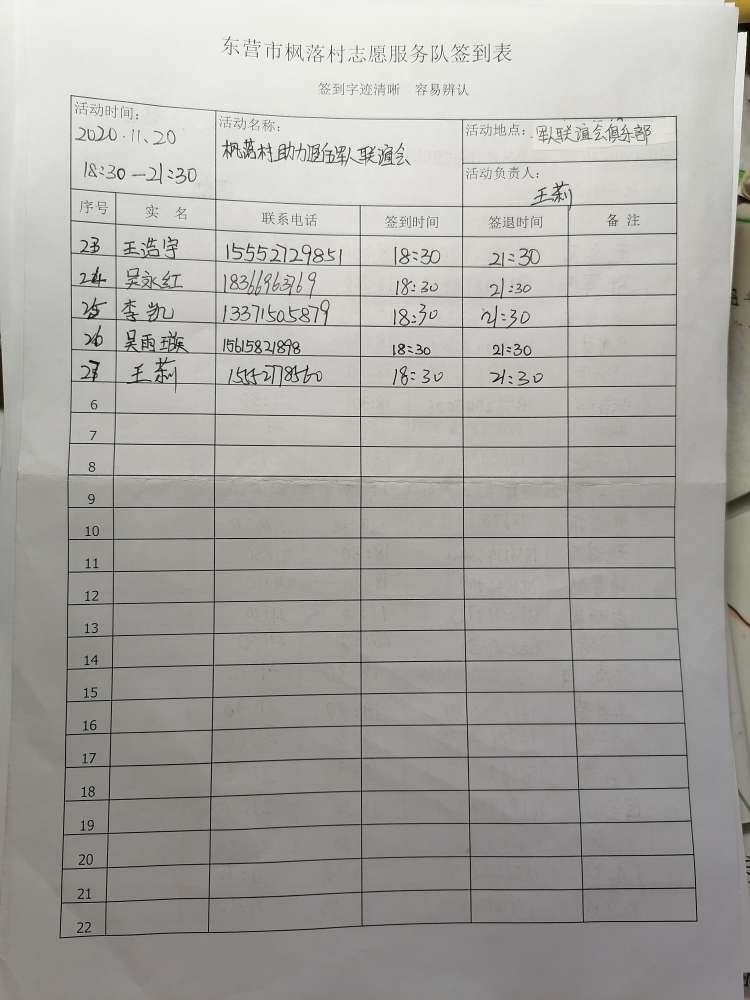 东营市枫落村志愿服务队签到表
签到字迹清晰 容易辨认
活动时间: 2020.11.20 18:30—21:30
活动名称: 枫落村助力退伍军人联谊会
活动地点: 军人联谊会俱乐部
活动负责人: 王莉
序号 实 名 联系电话 签到时间 签退时间 备 注
23 王浩宇 15552729851 18:30 21:30
24 吴永红 18366963769 18:30 21:30
25 李凯 13371505879 18:30 21:30
26 吴雨璇 15615821898 18:30 21:30
27 王莉 15552778560 18:30 21:30
6
7
8
9
10
11
12
13
14
15
16
17
18
19
20
21
22